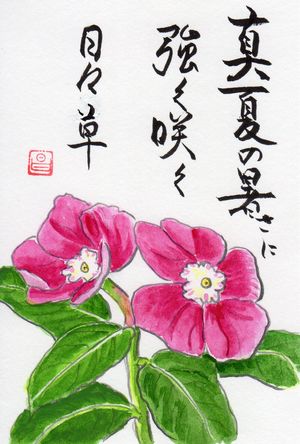 真夏の暑さに
強く咲く
日々草